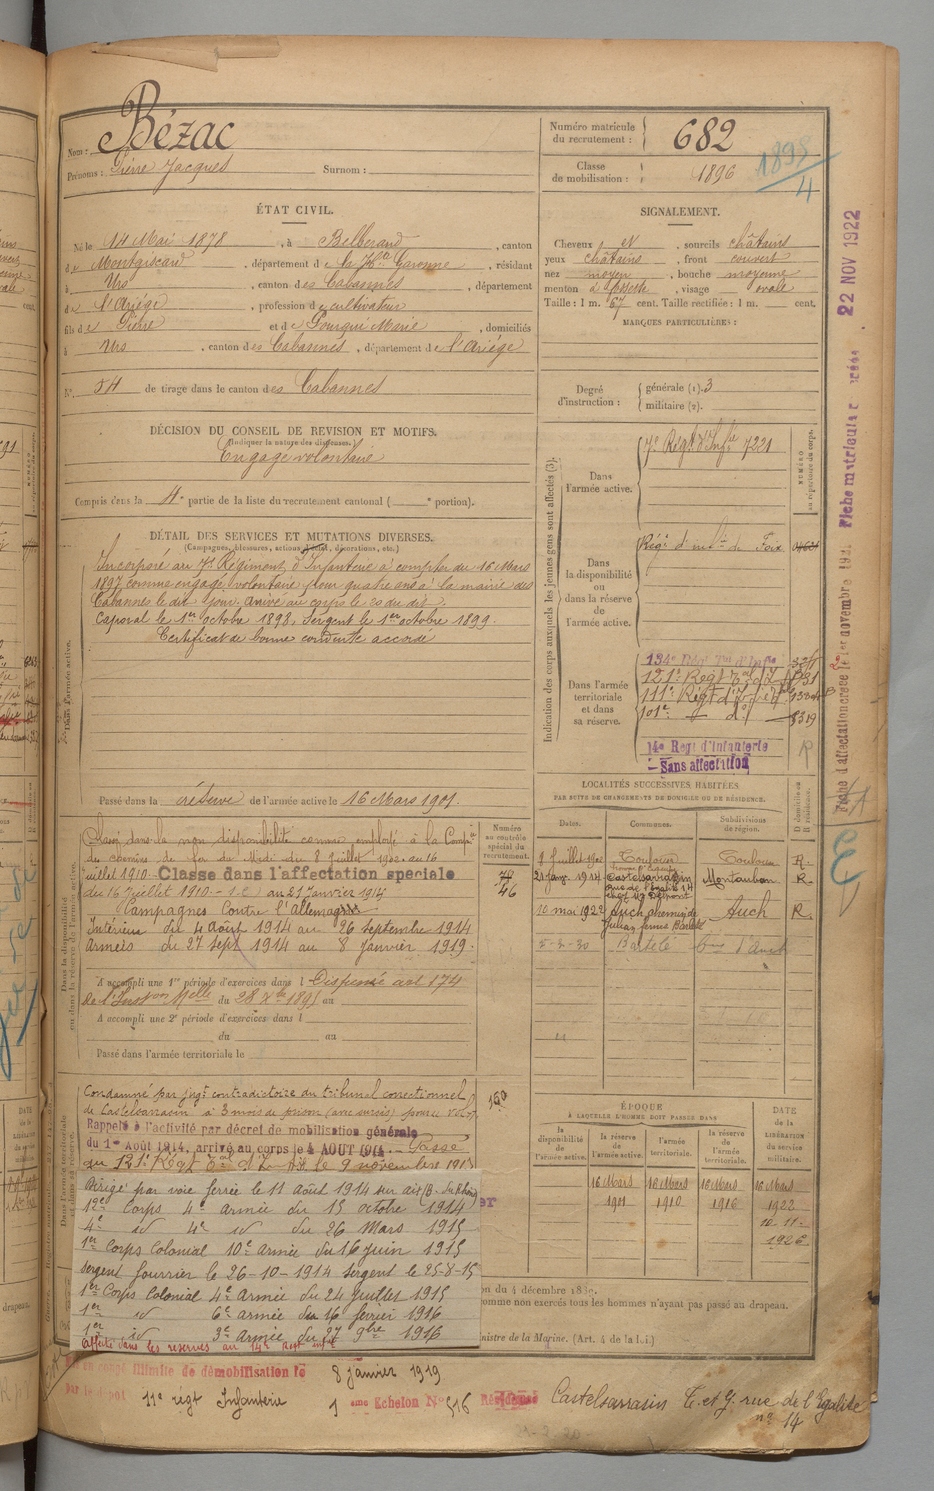 Nom : Bézac
Prénoms : Pierre Jacques Surnom :
Numéro matricule du recrutement : 682
Classe de mobilisation : 1896
1895
4
ÉTAT CIVIL.
Né le 14 Mai 1878, à Belberaud, canton
de Montgiscard, département de la Hte Garonne, résidant
à Urs, canton des Cabannes, département
de l'Ariége, profession de cultivateur
fils de Pierre et de Gourgui Marie, domiciliés
à Urs, canton des Cabannes, département de l'Ariége
N° 54 de tirage dans le canton des Cabannes
SIGNALEMENT.
Cheveux et, sourcils châtains
yeux châtains, front couvert
nez moyen, bouche moyenne
menton à fossette, visage ovale
Taille : 1 m. 67 cent. Taille rectifiée : 1 m. cent.
MARQUES PARTICULIÈRES :
Degré d'instruction : générale (1). 3
militaire (2).
DÉCISION DU CONSEIL DE REVISION ET MOTIFS.
(Indiquer la nature des dispenses.)
Engagé volontaire
Compris dans la 4e partie de la liste du recrutement cantonal ( e portion).
DÉTAIL DES SERVICES ET MUTATIONS DIVERSES.
(Campagnes, blessures, actions d'éclat, décorations, etc.)
Incorporé au 7e Régiment d'Infanterie à compter du 16 Mars
1897 comme engagé volontaire pour quatre ans à la mairie des
Cabannes le dit jour. Arrivé au corps le 20 du dit.
Caporal le 1er octobre 1898. Sergent le 1er octobre 1899.
Certificat de bonne conduite accordé
Passé dans la réserve de l'armée active le 16 Mars 1901.
Indication des corps auxquels les jeunes gens sont affectés (3).
NUMÉRO au répertoire du corps.
Dans l'armée active.
7e Régt d'Infie 7221
Dans la disponibilité ou dans la réserve de l'armée active.
Régt d'infie de Foix
Dans l'armée territoriale et dans sa réserve.
134e Rég Tal d'Infie
121e Regt Tal d'I
111e Régt
101e d°
14e Regt d'Infanterie
Sans affectation
Classé dans la non disponibilité comme employé à la Compie
de chemins de fer du Midi du 8 juillet 1902 au 16
juillet 1910 Classé dans l'affectation speciale
du 16 Juillet 1910 - au 21 janvier 1914
Campagnes Contre l'Allemagne
Intérieur du 4 août 1914 au 26 septembre 1914
Armées du 27 sept 1914 au 8 janvier 1919.
A accompli une 1re période d'exercices dans l Dispensé art 174
du 28 Xbre au
A accompli une 2e période d'exercices dans l
du au
Passé dans l'armée territoriale le
Numéro au contrôle spécial du recrutement.
46
LOCALITÉS SUCCESSIVES HABITÉES
PAR SUITE DE CHANGEMENTS DE DOMICILE OU DE RÉSIDENCE.
Dates. Communes. Subdivisions de région. D domicile ou R résidence.
8 Juillet 1902 Toulouse Toulouse R.
21 janv. 1914 Castelsarrazin Montauban R.
rue de l'Egalité 14
10 mai 1922 Auch chemin de Auch R.
Condamné par jugt contradictoire du tribunal correctionnel
de Castelsarrasin à 3 mois de prison (avec sursis) pour vol
150
Rappelé à l'activité par décret de mobilisation générale
du 1er Août 1914, arrivé au corps le 4 AOUT 1914. Passé
au 121e Régt Tal d'Infie le 9 novembre 1915
Dirigé par voie ferrée le 11 Août 1914 sur Aix (B. du Rhône)
12e Corps 4e armée du 15 octobre 1914
4e id 4e id du 26 Mars 1915
1er Corps Colonial 10e armée du 16 juin 1915
Sergent fourrier le 26-10-1914 Sergent le 25-8-15
1er Corps Colonial 4e Armée du 24 juillet 1915
1er id 6e armée du 16 février 1916
1er id 3e Armée du 27 9bre 1916
Affecté dans les reserves au 14e Regt infie
ÉPOQUE
À LAQUELLE L'HOMME DOIT PASSER DANS
la disponibilité de l'armée active. la réserve de l'armée active. l'armée territoriale. la réserve de l'armée territoriale. DATE de la LIBÉRATION du service militaire.
16 Mars 1901 16 Mars 1910 16 Mars 1916 16 Mars 1922
10-11-1926
Ministre de la Marine. (Art. 4 de la loi.)
Mis en congé illimité de démobilisation le 8 janvier 1919
par le dépôt 11e régt Infanterie 1 eme Echelon N° 516 Résidence Castelsarrasin T. et G. rue de l'Egalité
n° 14
Fiche d'affectation créée le 1er novembre Fiche matriculaire créée 22 NOV 1922